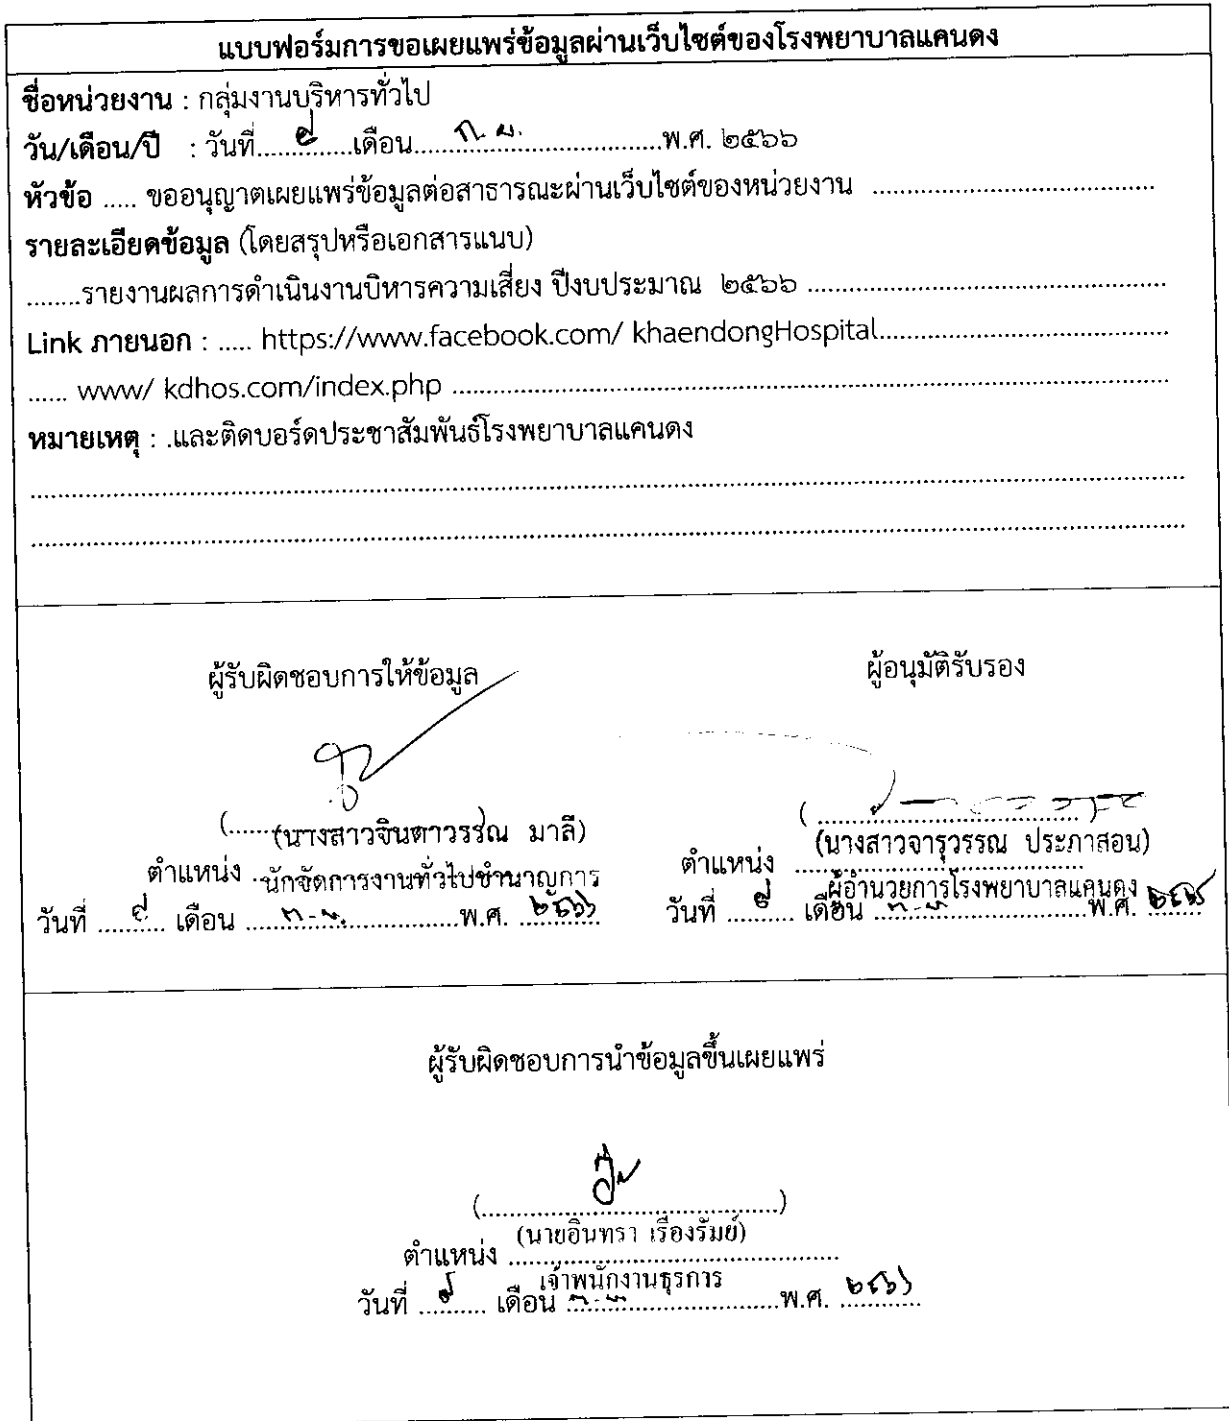 แบบฟอร์มการขอเผยแพร่ข้อมูลผ่านเว็บไซต์ของโรงพยาบาลแคนดง
ชื่อหน่วยงาน : กลุ่มงานบริหารทั่วไป
วัน/เดือน/ปี : วันที่...............เดือน.....ก.ย...............พ.ศ. ๒๕๖๖
หัวข้อ ..... ขออนุญาตเผยแพร่ข้อมูลต่อสาธารณะผ่านเว็บไซต์ของหน่วยงาน ..........................................
รายละเอียดข้อมูล (โดยสรุปหรือเอกสารแนบ)
........รายงานผลการดำเนินงานบิหารความเสี่ยง ปีงบประมาณ ๒๕๖๖ ......................................................
Link ภายนอก : ..... https://www.facebook.com/ khaendongHospital...........................................
...... www/ kdhos.com/index.php ..........................................................................................................
หมายเหตุ : .และติดบอร์ดประชาสัมพันธ์โรงพยาบาลแคนดง
ผู้รับผิดชอบการให้ข้อมูล ผู้อนุมัติรับรอง
(นางสาวจินดาวรรณ มาลี) (นางสาวจารุวรรณ ประภาสอน)
ตำแหน่ง นักจัดการงานทั่วไปชำนาญการ ตำแหน่ง ผู้อำนวยการโรงพยาบาลแคนดง
วันที่ .......... เดือน ....ก.ย.....................พ.ศ. ๒๕๖๖ วันที่ .......... เดือน ....ก.ย.....................พ.ศ. ............
ผู้รับผิดชอบการนำข้อมูลขึ้นเผยแพร่
(.............................................)
(นายอินทรา เรืองรัมย์)
ตำแหน่ง เจ้าพนักงานธุรการ
วันที่ .......... เดือน ....ก.ย.....................พ.ศ. ๒๕๖๖